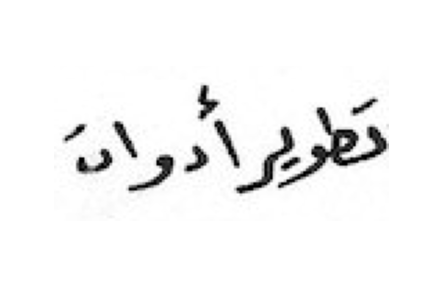 تطوير أدوات